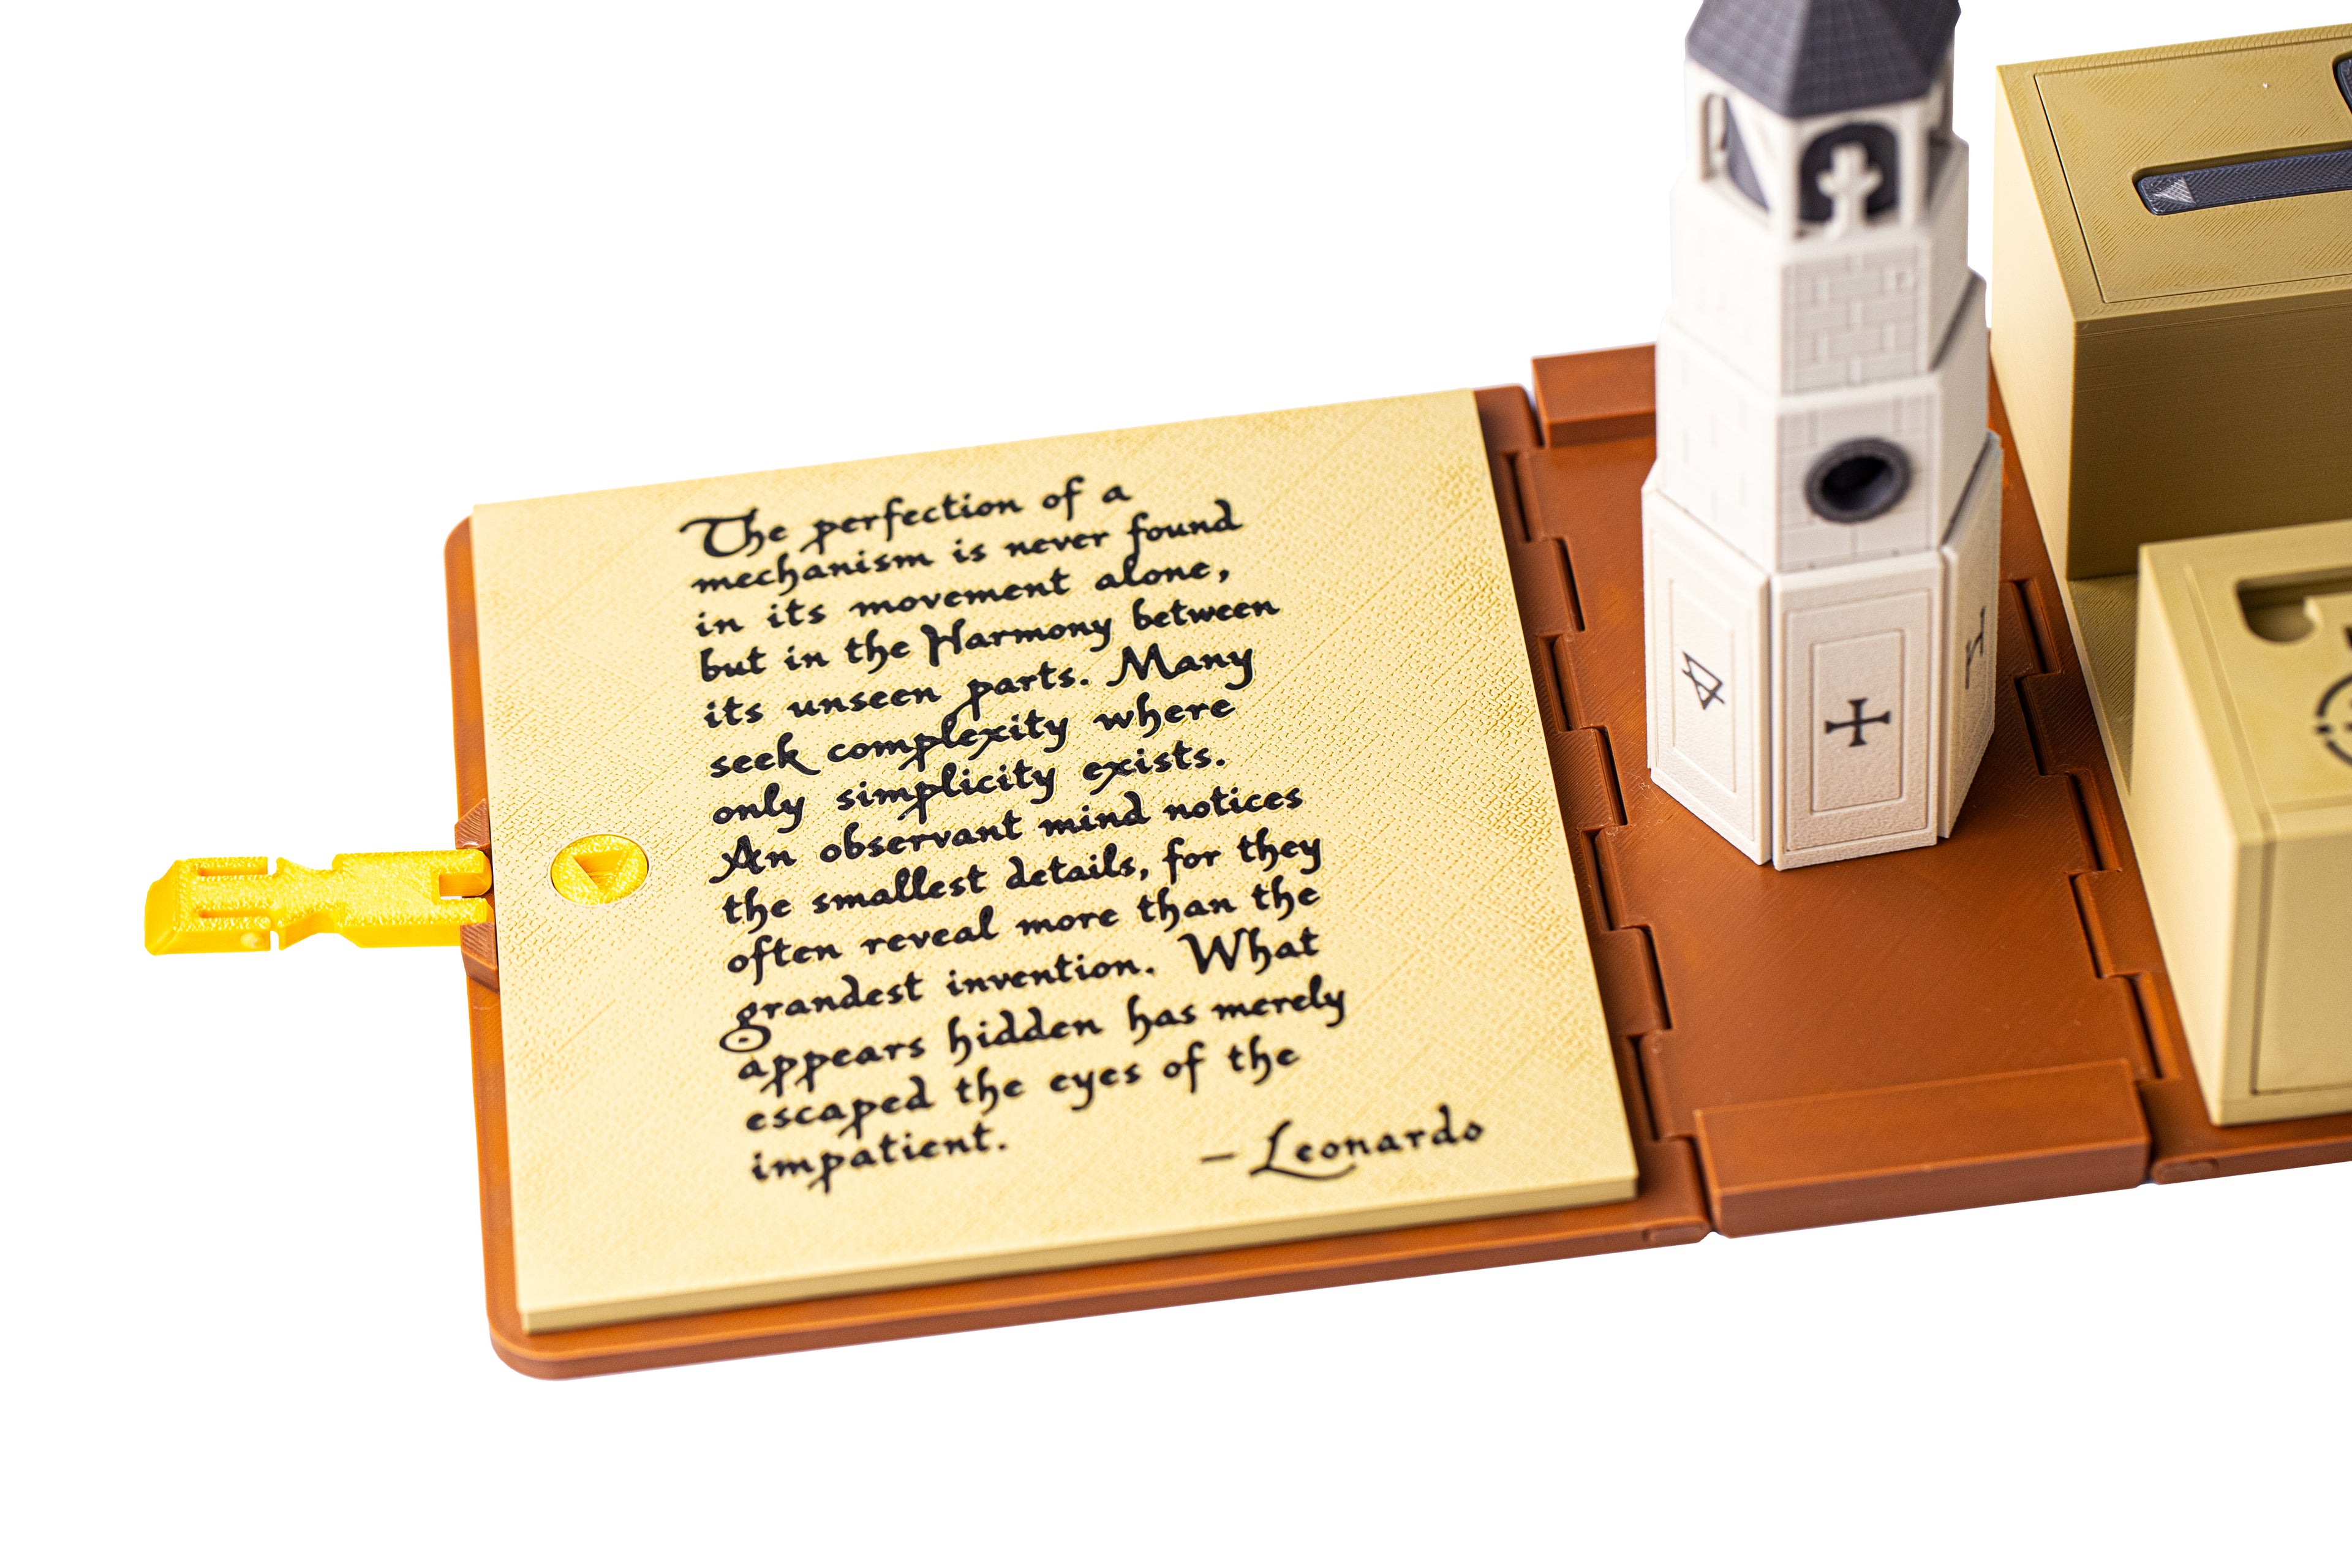 The perfection of a
mechanism is never found
in its movement alone,
but in the Harmony between
its unseen parts. Many
seek complexity where
only simplicity exists.
An observant mind notices
the smallest details, for they
often reveal more than the
grandest invention. What
appears hidden has merely
escaped the eyes of the
impatient.
– Leonardo